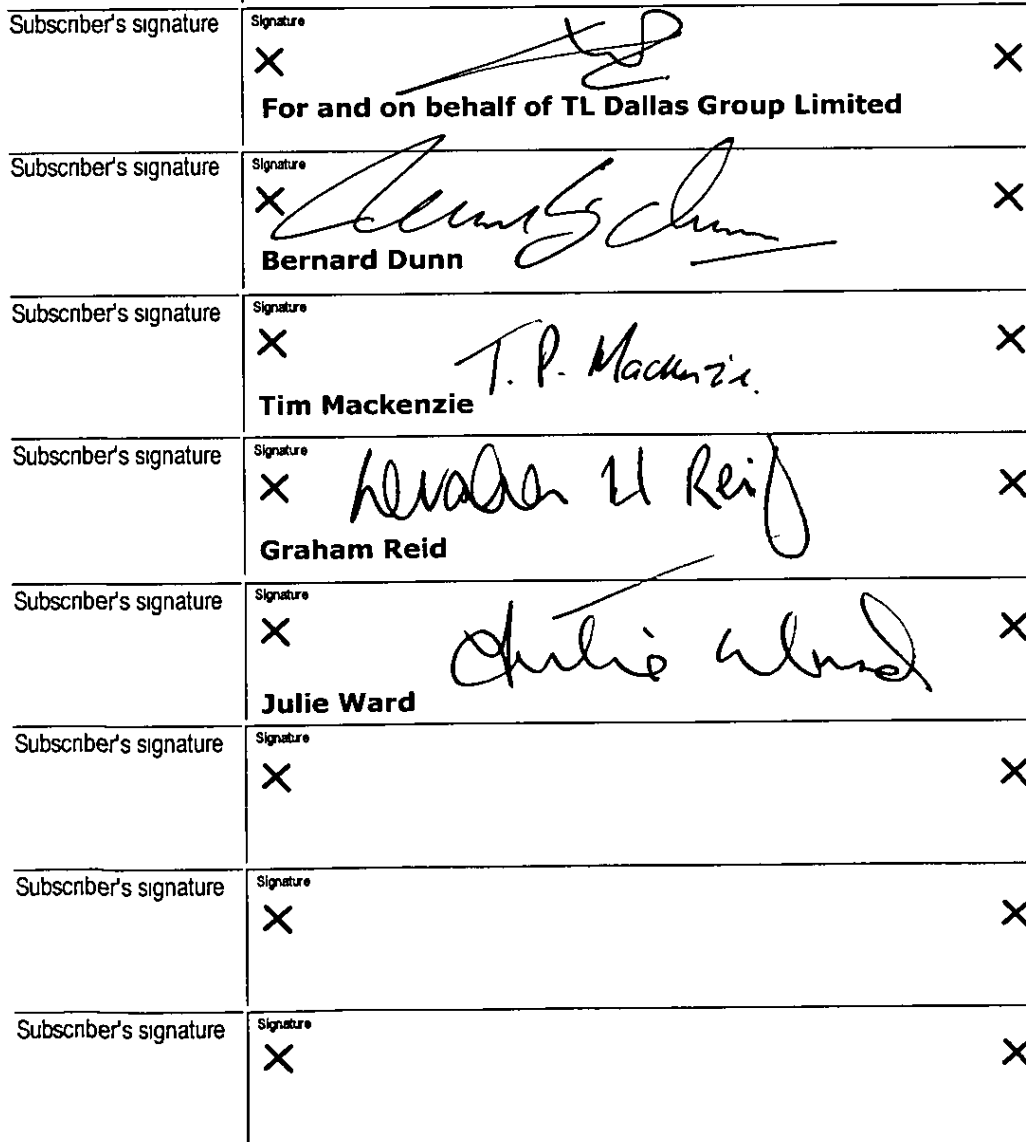 Subscriber's signature
Signature
X X
For and on behalf of TL Dallas Group Limited
Subscriber's signature
Signature
X X
Bernard Dunn
Subscriber's signature
Signature
X T. P. Mackenzie. X
Tim Mackenzie
Subscriber's signature
Signature
X Graham H Reid X
Graham Reid
Subscriber's signature
Signature
X Julie Ward X
Julie Ward
Subscriber's signature
Signature
X X
Subscriber's signature
Signature
X X
Subscriber's signature
Signature
X X